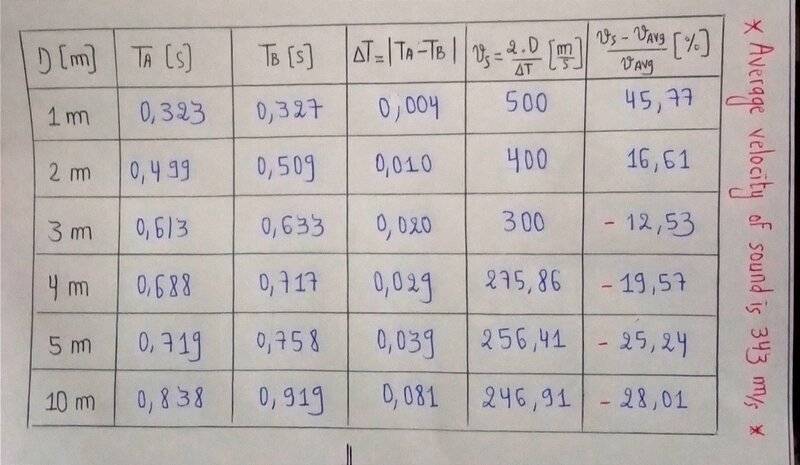 D [m] TA [s] TB [s] ΔT=|TA-TB| vs = 2.D/ΔT [m/s] vs - vAvg/vAvg [%]
1 m 0,323 0,327 0,004 500 45,77
2 m 0,499 0,509 0,010 400 16,61
3 m 0,613 0,633 0,020 300 - 12,53
4 m 0,688 0,717 0,029 275,86 - 19,57
5 m 0,719 0,758 0,039 256,41 - 25,24
10 m 0,838 0,919 0,081 246,91 - 28,01
* Average velocity of sound is 343 m/s *